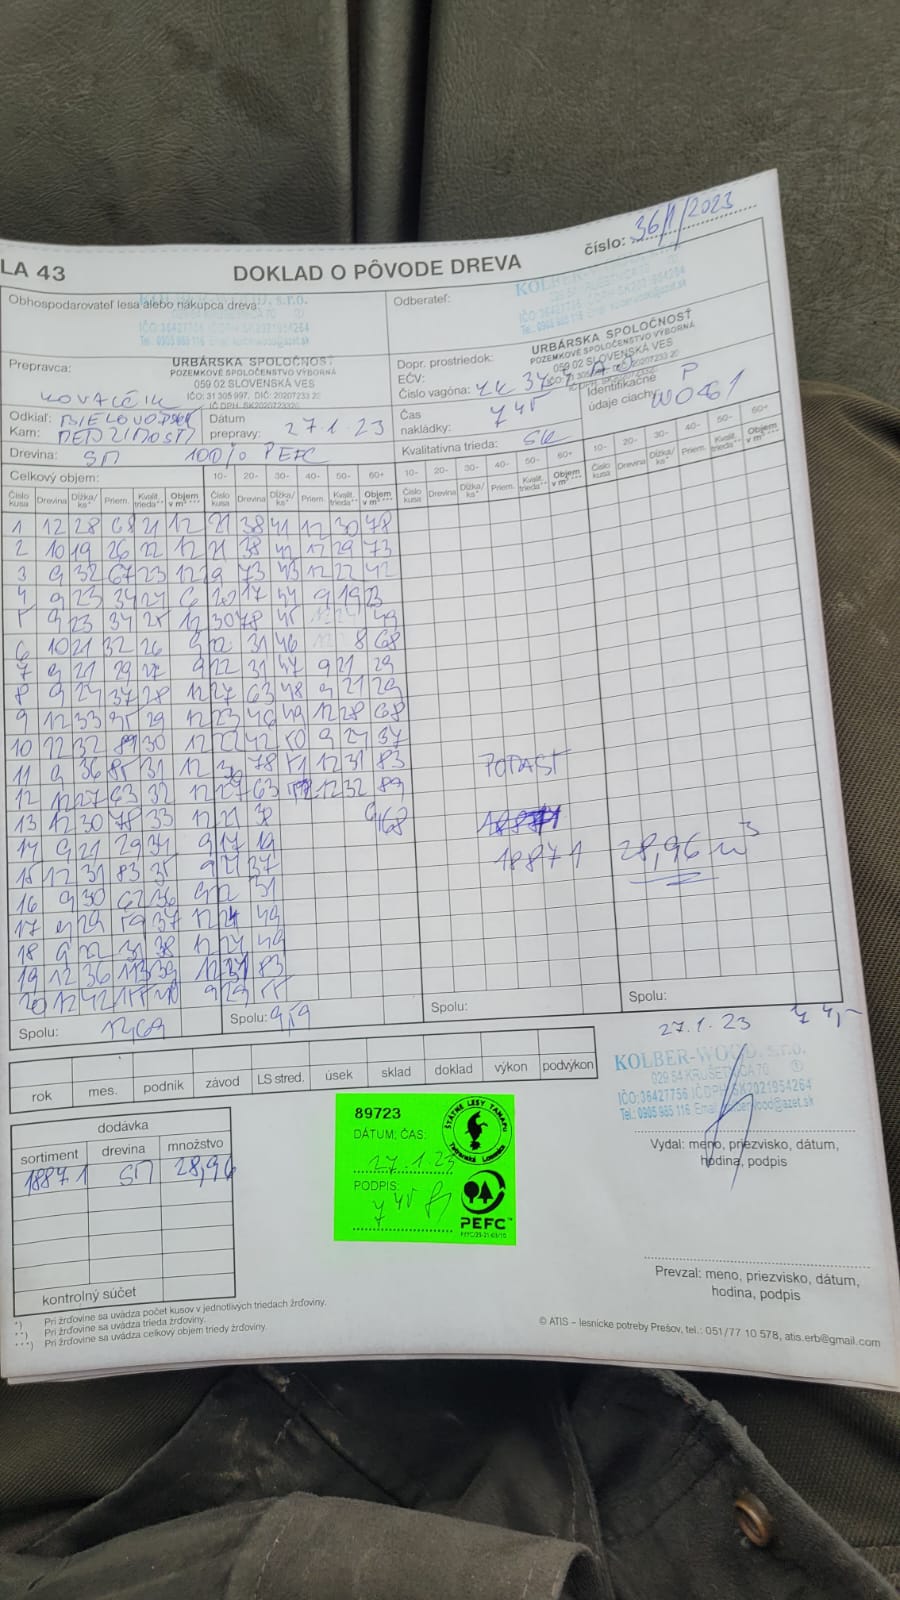 číslo: 36/1/2023
LA 43 DOKLAD O PÔVODE DREVA
Obhospodarovateľ lesa alebo nákupca dreva:
IČO: 36427756 IČ DPH SK2021954264
Odberateľ:
KOLBER-WOOD, s.r.o.
Prepravca:
URBÁRSKA SPOLOČNOSŤ
POZEMKOVÉ SPOLOČENSTVO VÝBORNÁ
059 02 SLOVENSKÁ VES
IČO: 31 305 997, DIČ: 20207233 20
IČ DPH: SK2020723320
KOVALČIK
Dopr. prostriedok:
EČV:
Číslo vagóna:
URBÁRSKA SPOLOČNOSŤ
POZEMKOVÉ SPOLOČENSTVO VÝBORNÁ
059 02 SLOVENSKÁ VES
Identifikačné
údaje ciachy:
P
Odkiaľ:
Kam:
Dátum
prepravy: 27.1.23
Čas
nakládky: 7 45
Drevina: SM 100% PEFC
Kvalitatívna trieda:
Celkový objem: 10- 20- 30- 40- 50- 60+ 10- 20- 30- 40- 50- 60+ 10- 20- 30- 40- 50- 60+
Číslo kusa Drevina Dĺžka/ ks* Priem. Kvalit. trieda** Objem v m³*** Číslo kusa Drevina Dĺžka/ ks* Priem. Kvalit. trieda** Objem v m³*** Číslo kusa Drevina Dĺžka/ ks* Priem. Kvalit. trieda** Objem v m³*** Číslo kusa Drevina Dĺžka/ ks* Priem. Kvalit. trieda** Objem v m³***
1 12 28 68 21 12 21 38 41 12 30 78
2 10 19 26 22 12 21 38 42 12 29 73
3 9 32 67 23 12 29 73 43 12 22 42
4 9 23 34 24 6 20 17 44 9 19 23
5 9 23 34 25 12 30 78 45 49
6 10 21 32 26 9 22 31 46 8 68
7 9 21 29 27 9 22 31 47 9 21 29
8 9 24 37 28 12 27 63 48 9 21 29
9 12 33 95 29 12 23 46 49 12 28 68
10 22 32 89 30 12 22 42 50 9 24 37
11 9 36 85 31 12 30 78 51 12 31 83
12 12 27 63 32 12 27 63 52 12 32 89
13 12 30 78 33 12 21 38 9,68
14 9 21 29 34 9 17 19
15 12 31 83 35 9 24 37
16 9 30 62 36 9 22 31
17 9 29 59 37 12 24 49
18 9 22 31 38 12 24 49
19 12 36 113 39 12 31 83
20 12 42 155 40 9 29 55
18871 28,96 m³
Spolu: 12,69 Spolu: 9,59 Spolu: Spolu:
27.1.23
rok mes. podnik závod LS stred. úsek sklad doklad výkon podvýkon
KOLBER-WOOD, s.r.o.
029 54 KRUŠETNICA 70
IČO: 36427756 IČ DPH SK2021954264
Tel.: 0905 985 116
Vydal: meno, priezvisko, dátum,
hodina, podpis
dodávka
sortiment drevina množstvo
18871 SM 28,96
kontrolný súčet
89723
DÁTUM; ČAS:
27.1.23
PODPIS:
7 45
ŠTÁTNE LESY TANAPU
Tatranská Lomnica
PEFC™
Prevzal: meno, priezvisko, dátum,
hodina, podpis
*) Pri žrďovine sa uvádza počet kusov v jednotlivých triedach žrďoviny.
**) Pri žrďovine sa uvádza trieda žrďoviny.
***) Pri žrďovine sa uvádza celkový objem triedy žrďoviny.
© ATIS – lesnícke potreby Prešov, tel.: 051/77 10 578, atis.erb@gmail.com